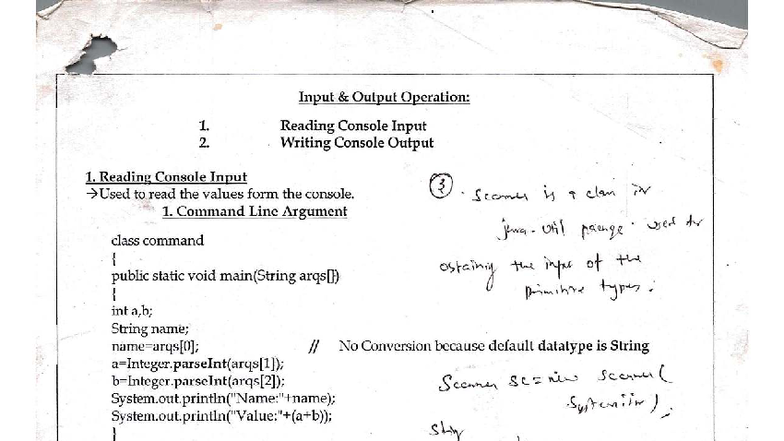 Input & Output Operation:
1. Reading Console Input
2. Writing Console Output
1. Reading Console Input
→Used to read the values form the console.
1. Command Line Argument
class command
{
public static void main(String arqs[])
{
int a,b;
String name;
name=arqs[0]; // No Conversion because default datatype is String
a=Integer.parseInt(arqs[1]);
b=Integer.parseInt(arqs[2]);
System.out.println("Name:"+name);
System.out.println("Value:"+(a+b));
}
③ . Scanner is a class in
java.util package. used for
obtaining the input of the
primitive types.
Scanner sc=new Scanner(
System.in);